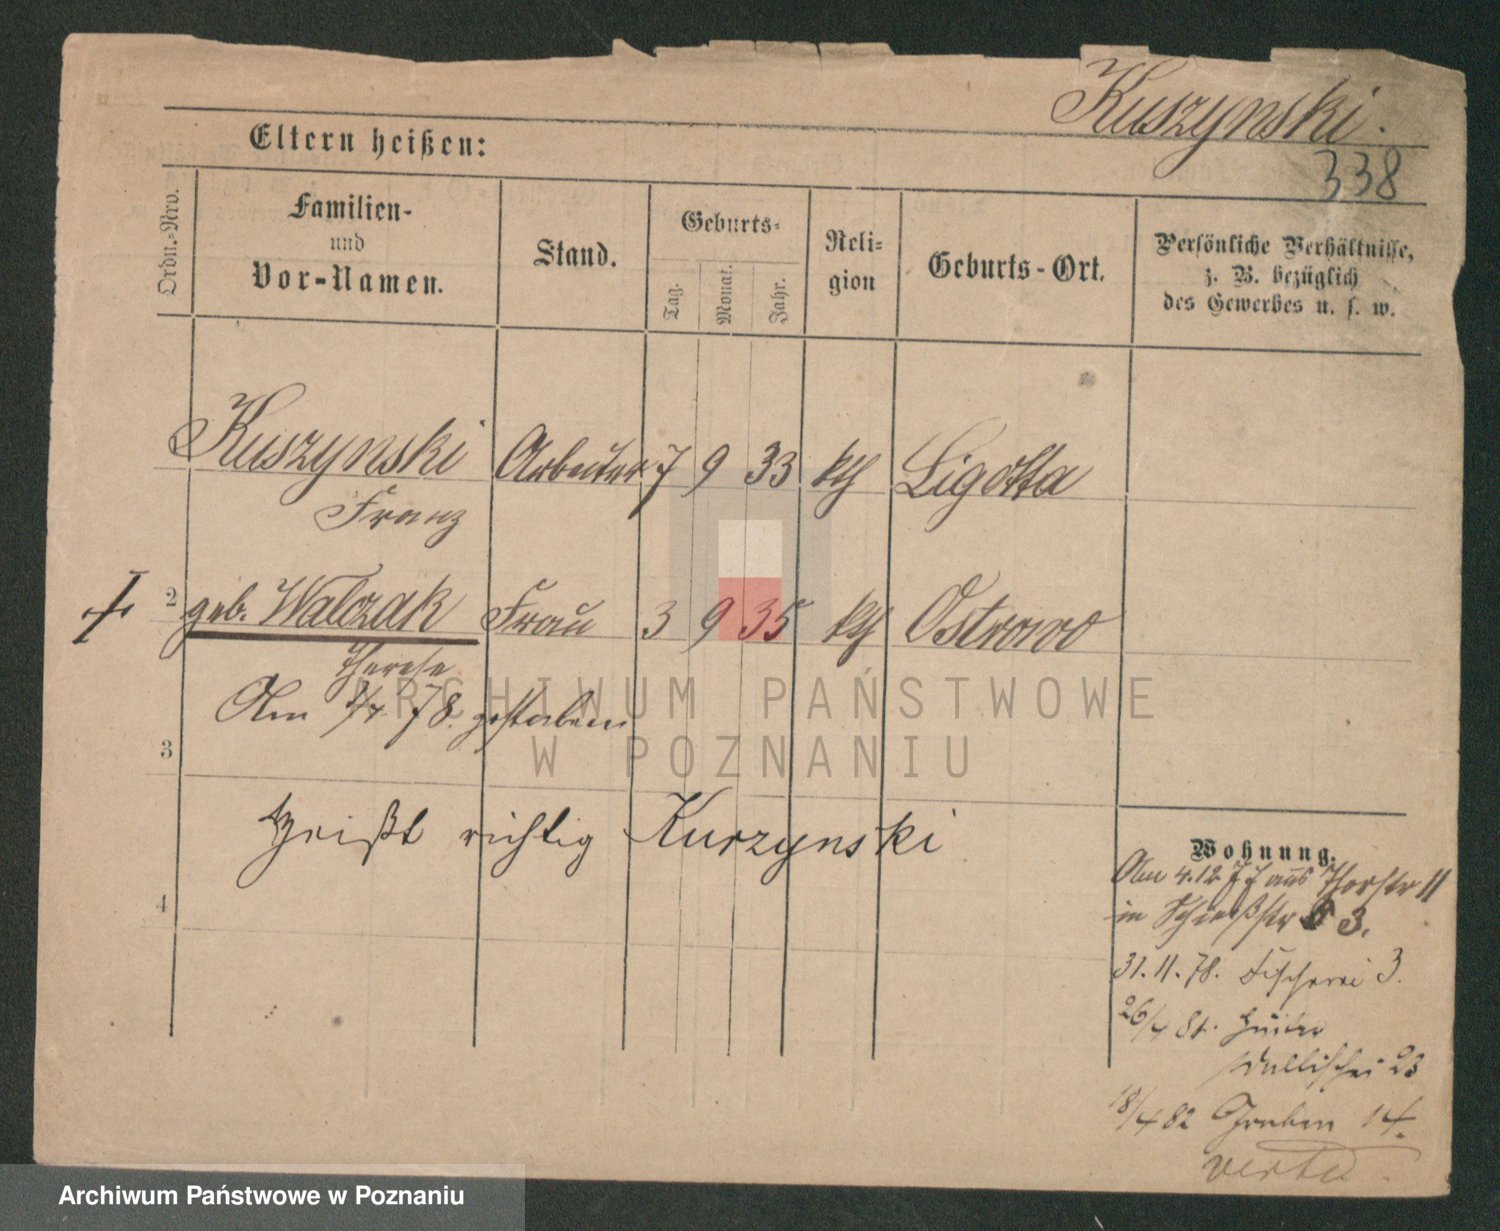 Kuszynski.
338
Eltern heißen:
Ordn.-Nro.
Familien-
und
Vor-Namen.
Stand.
Geburts-
Tag.
Monat.
Jahr.
Reli-
gion
Geburts-Ort.
Persönliche Verhältnisse,
z. B. bezüglich
des Gewerbes u. s. w.
Kuszynski Arbeiter 7 9 33 kth Ligotta
Franz
2 geb. Walczak Frau 3 9 35 kth Ostrowo
Therese
Am 78 gestorben
ARCHIWUM PAŃSTWOWE
W POZNANIU
3
Heißt richtig Kurzynski
4
Wohnung.
Am 4.12 77 aus Thorstr 11
in Schießstr 3.
31.11.78. Fischerei 3.
26/4 81. Hinter
Wallischei 23
18/4 82 Graben 14.
verte
Archiwum Państwowe w Poznaniu